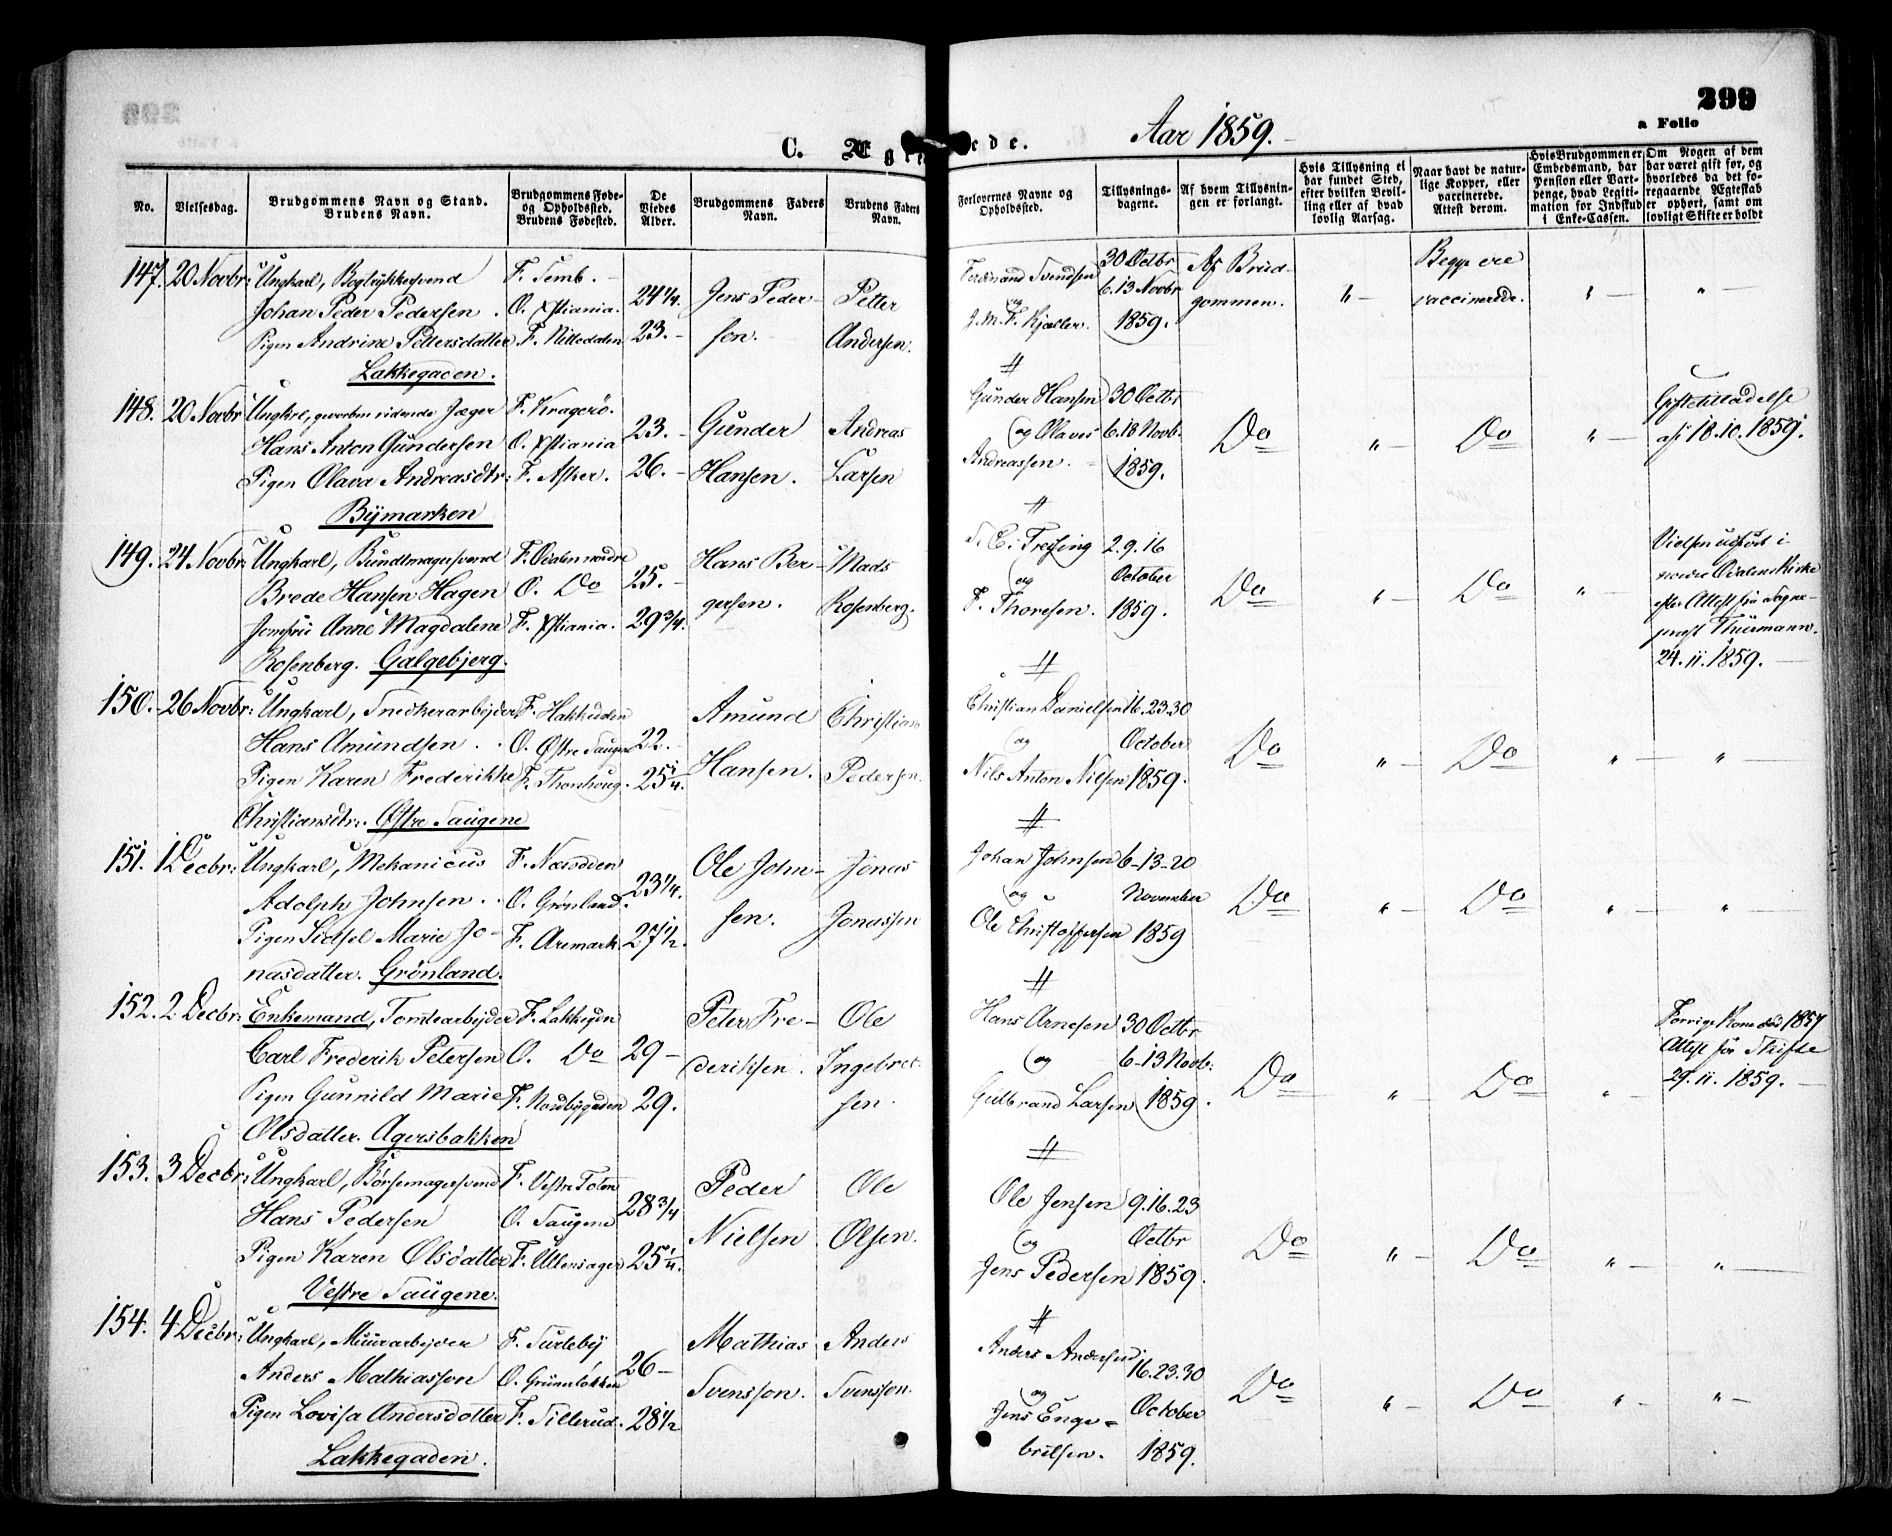 299
a Folio
C. Ægteviede. Aar 1859.
No.
Vielsesdag.
Brudgommens Navn og Stand.
Brudens Navn.
Brudgommens Føde-
og Opholdssted.
Brudens Fødested.
De
Viedes
Alder.
Brudgommens Faders
Navn.
Brudens Faders
Navn.
Forlovernes Navne og
Opholdssted.
Tillysnings-
dagene.
Af hvem Tillysnin-
gen er forlangt.
Hvis Tillysning ei
har fundet Sted,
efter hvilken Bevil-
ling eller af hvad
lovlig Aarsag.
Naar havt de natur-
lige Kopper, eller
vaccinerede.
Attest derom.
Hvis Brudgommen er
Embedsmand, har
Pension eller Vart-
penge, hvad Legiti-
mation for Indskud
i Enke-Cassen.
Om Nogen af dem
har været gift før, og
hvorledes da det fo-
regaaende Ægteskab
er ophørt, samt om
lovligt Skifte er holdt
147. 20 Novbr: Ungkarl, Bogtrykkersvend F. Semb.
Johan Peder Pedersen. O. Xstiania. 24 1/4. Jens Peder- Petter
Pigen Andrine Pettersdatter F. Nittedalen 23. sen. Andersen.
Lakkegaden.
Ferdinand Svendsen 30 Octbr Af Brud- Begge ere
og 6. 13 Novbr gommen. " vaccinerede. " "
J. M. F. Kjøller. 1859.
148. 20 Novbr Ungkrl, gevorben ridende Jæger F. Kragerö.
Hans Anton Gundersen O. Xstiania 23. Gunder Andreas
Pigen Olava Andreasdtr: F. Asker. 26. Hansen. Larsen
Bymarken
Gunder Hansen 30 Octbr Giftetilladelse
og Olaves 6. 13 Novb. Do " Do " af 18.10.1859.
Andreassen. 1859.
149. 24 Novbr: Ungkarl, Bundtmagersvend F. Odalen nordre Hans Ber- Mads
Brede Hansen Hagen O. Do 25. gersen. Rosenberg.
Jomfru Anne Magdalene F. Xstiania. 29 3/4.
Rosenberg. Galgebjerg.
2. 9. 16 Vielsen udført i
og October nordre Odalens Kirke
F. Thoresen. 1859. Do " Do " efter Attest fra Sogne-
prest Thurmann.
24.11.1859.
150. 26 Novbr: Ungkarl, Snedkerarbejder F. Hakkedalen Amund Christian
Hans Amundsen. O. Østre Saugene 22. Hansen. Pedersen.
Pigen Karen Frederikke F. Thorshoug. 25 1/4.
Christiansdtr: Østre Saugene
Christian Danielsen 16.23.30
og October Do " Do " "
Nils Anton Nilsen 1859.
151. 1 Decbr: Ungkarl, Mekanicus F. Næsodden Ole John- Jonas
Adolph Johnsen. O. Grønland. 23 1/4. sen. Jonassen
Pigen Sidsel Marie Jo- F. Aremark. 27 1/2.
nasdatter. Grönland.
Johan Johnsen 6-13-20
og November Do " Do " "
Ole Christoffersen 1859
152. 2 Decbr: Enkemand, Tomtearbejder F. Lakkegdn Peter Fre- Ole
Carl Frederik Petersen O. Do 29 deriksen. Ingebret-
Pigen Gunnild Marie F. Nordbygaden 29. sen.
Olsdatter. Agersbakken
Hans Arnesen 30 Octbr Forrige Kone död 1857
og 6-13 Novb: Do " Do " Attest för Skifte
Gulbrand Larsen 1859. 29.11.1859.
153. 3 Decbr: Ungkarl, Börsemagersvend F. Vestre Toten Peder Ole
Hans Pedersen O. Saugene 28 3/4 Nielsen Olsen.
Pigen Karen Olsdatter F. Ullensager 25 1/4.
Vestre Saugene.
Ole Jensen 9.16.23
og Octbr Do " Do " "
Jens Pedersen 1859.
154. 4 Decbr: Ungkarl, Muurarbejder F. Surteby Mathias Anders
Anders Mathiasson O. Grünerløkken 26 Svensson. Svensson.
Pigen Lovisa Andersdotter F. Sillerud. 28 1/2
Lakkegaden.
Anders Andersen 16.23.30
og October Do " Do " "
Jens Enge-
bretsen. 1859.